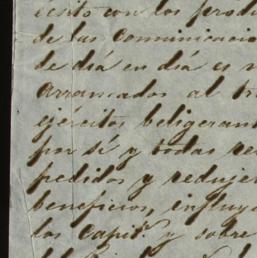 ícito con los produ
de las comunicacio
de día en día es m
arrancados al tra
ejércitos beligerant
por sí y todas re
pedidos y redujer
beneficios, influy
los capit.s y sobre